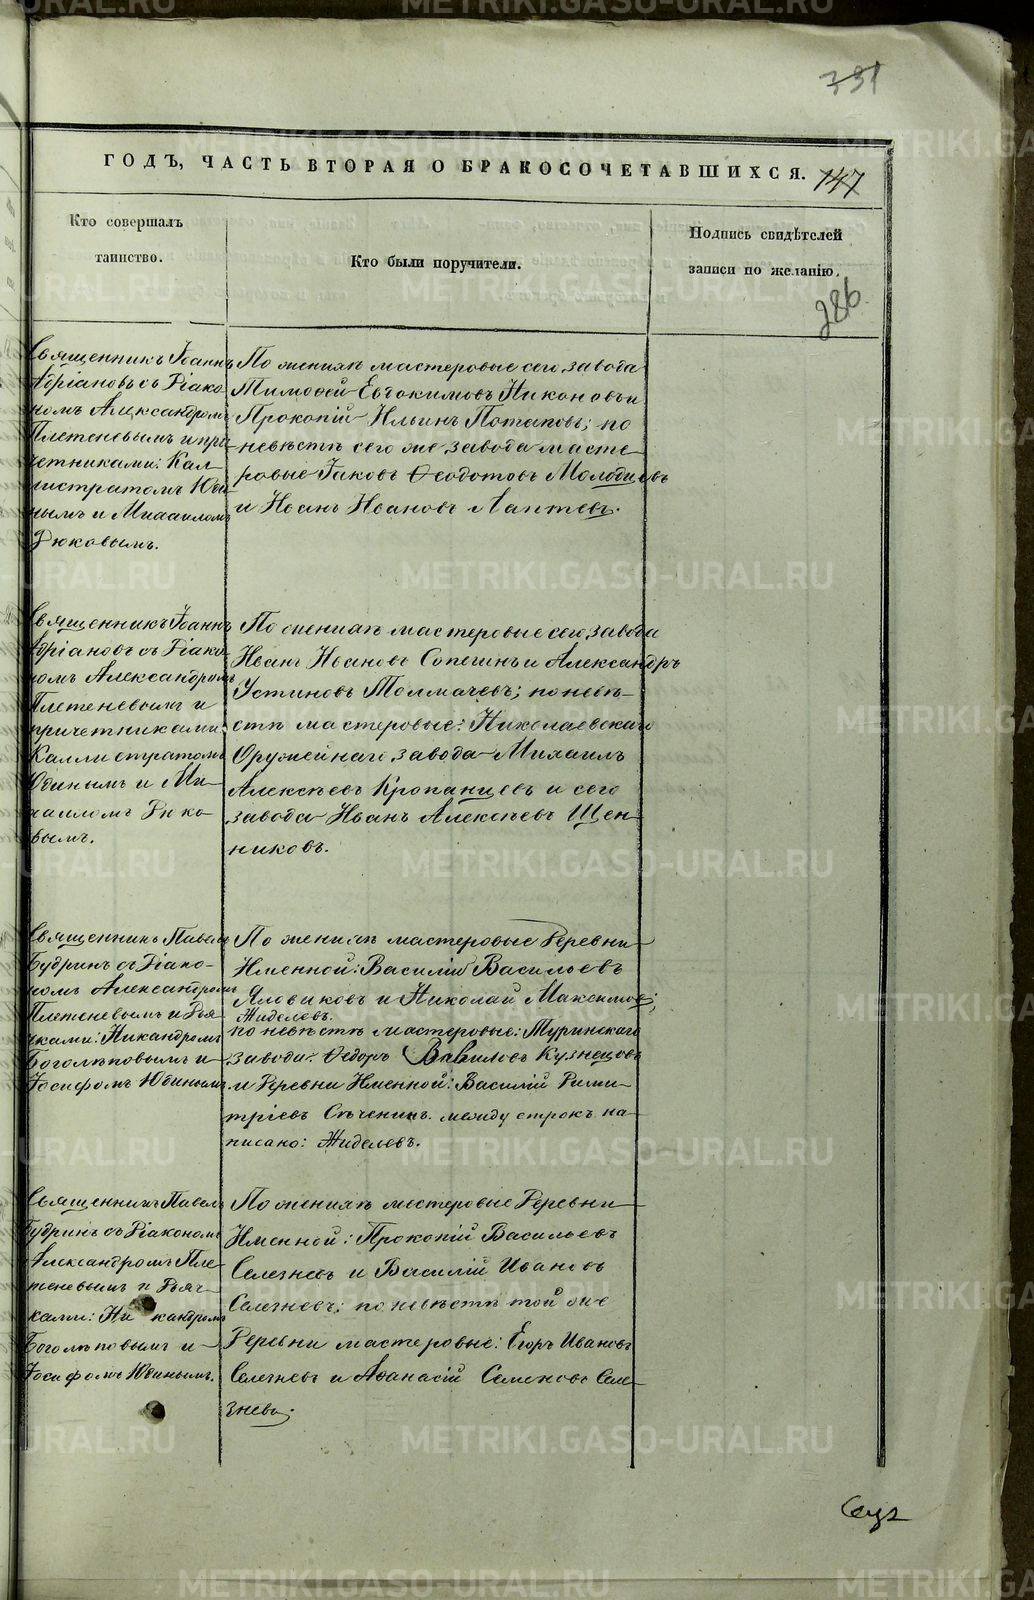 731
ГОДЪ, ЧАСТЬ ВТОРАЯ О БРАКОСОЧЕТАВШИХСЯ.
147
286
Кто совершалъ
таинство.
Кто были поручители.
Подпись свидѣтелей
записи по желанію.
Священникъ Іоаннъ
Адріановъ съ Діако-
номъ Александромъ
Плетеневымъ и при-
четниками: Кал-
листратомъ Юди-
нымъ и Михаиломъ
Дюковымъ.
По женихѣ мастеровые сего завода
Тимофей Евдокимовъ Никоновъ и
Прокопій Ильинъ Потаповъ; по
невѣстѣ сего же завода масте-
ровые Іаковъ Ѳеодотовъ Молодцовъ
и Иванъ Ивановъ Лаптевъ.
Священникъ Іоаннъ
Адріановъ съ Діако-
номъ Александромъ
Плетеневымъ и
причетниками:
Каллистратомъ
Юдинымъ и Ми-
хаиломъ Дюко-
вымъ.
По женихѣ мастеровые сего завода
Иванъ Ивановъ Сопегинъ и Александръ
Устиновъ Толмачевъ; по невѣ-
стѣ мастеровые: Николаевскаго
Оружейнаго завода Михаилъ
Алексѣевъ Кропанцевъ и сего
завода Иванъ Алексѣевъ Щен-
никовъ.
Священникъ Павелъ
Будринъ съ Діако-
номъ Александромъ
Плетеневымъ и Дья-
чками: Никандромъ
Боголѣповымъ и
Іосифомъ Юдинымъ.
По женихѣ мастеровые Деревни
Именной: Василій Васильевъ
Яловиковъ и Николай Максимовъ;
Жиделевъ.
по невѣстѣ мастеровые: Туринскаго
завода: Ѳедоръ Вавиловъ Кузнецовъ
и Деревни Именной: Василій Дими-
тріевъ Сѣченинъ. между строкъ на-
писано: Жиделевъ.
Священникъ Павелъ
Будринъ съ Діакономъ
Александромъ Пле-
теневымъ и Дьяч-
ками: Никандромъ
Боголѣповымъ и
Іосифомъ Юдинымъ.
По женихѣ мастеровые Деревни
Именной: Прокопій Васильевъ
Селезневъ и Василій Ивановъ
Селезневъ; по невѣстѣ той же
Деревни мастеровые: Егоръ Ивановъ
Селезневъ и Аѳанасій Семеновъ Селе-
зневъ.
METRIKI.GASO-URAL.RU